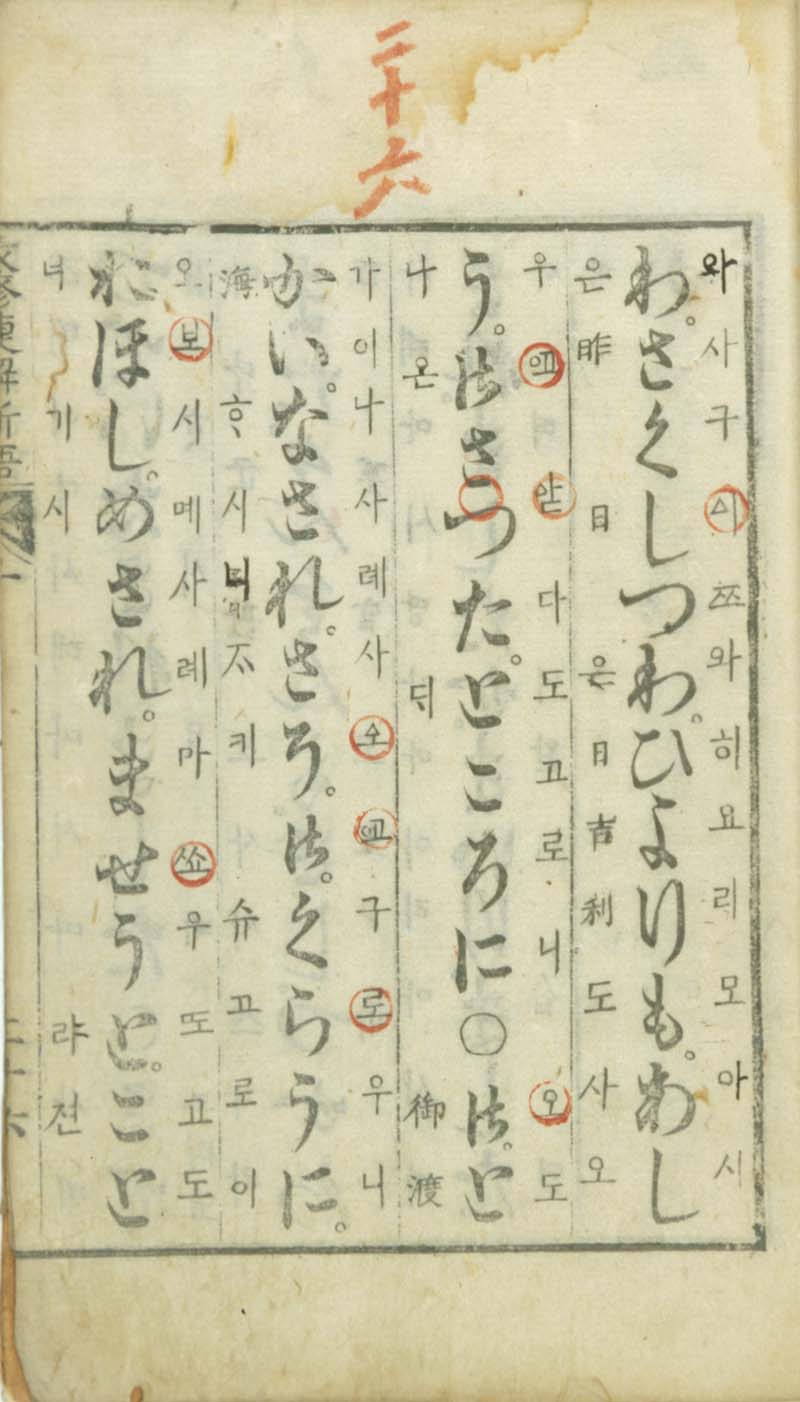 二十六
와사구시쯔와히요리모아시
わ。さくしつわ。ひよりも。あし
은昨日은日吉利도사오
우 다도고로니오도
う。御さつた。ところに○御。と
나온ᄃᆡ御渡
가이나사례사 구로우니
かい。なされ。さろ。御。くらうに。
海ᄒᆞ시 不키슈고로이
오보시메사례마쇼우또고도
おほし。めされ。ませうと。こと
너기시랴젼